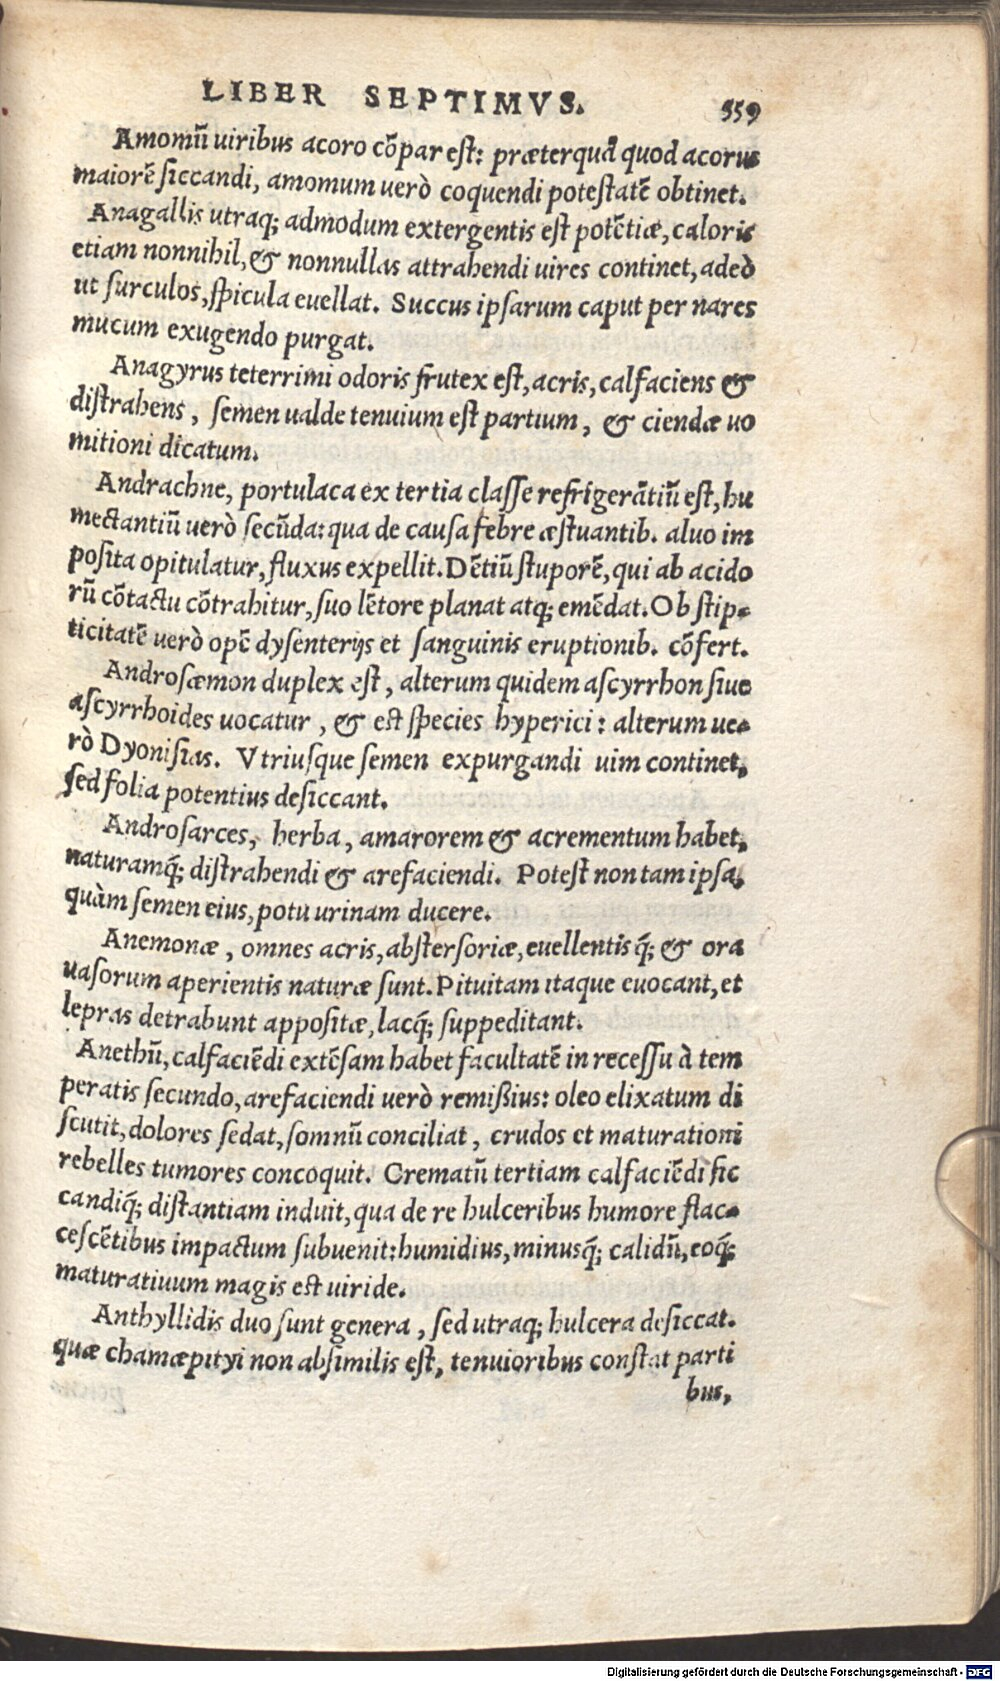 LIBER SEPTIMVS. 559
Amomū uiribus acoro cōpar est: præterquā quod acorus
maiorē siccandi, amomum uerò coquendi potestatē obtinet.
Anagallis utraq; admodum extergentis est potētiæ, caloris
etiam nonnihil, & nonnullas attrahendi uires continet, adeò
ut surculos, spicula euellat. Succus ipsarum caput per nares
mucum exugendo purgat.
Anagyrus teterrimi odoris frutex est, acris, calfaciens &
distrahens, semen ualde tenuium est partium, & ciendæ uo
mitioni dicatum.
Andrachne, portulaca ex tertia classe refrigerātiū est, hu
mectantiū uerò secūda: qua de causa febre æstuantib. aluo im
posita opitulatur, fluxus expellit. Dētiū stuporē, qui ab acido
rū cōtactu cōtrahitur, suo lētore planat atq; emēdat. Ob stip-
ticitatē uerò opē dysenterijs et sanguinis eruptionib. cōfert.
Androsæmon duplex est, alterum quidem ascyrrhon siue
ascyrrhoides uocatur, & est species hyperici: alterum ue-
rò Dyonisias. Vtriusque semen expurgandi uim continet,
sed folia potentius desiccant.
Androsarces, herba, amarorem & acrementum habet,
naturamq́; distrahendi & arefaciendi. Potest non tam ipsa,
quàm semen eius, potu urinam ducere.
Anemonæ, omnes acris, abstersoriæ, euellentisq́; & ora
uasorum aperientis naturæ sunt. Pituitam itaque euocant, et
lepras detrahunt appositæ, lacq́; suppeditant.
Anethū, calfaciēdi extēsam habet facultatē in recessu à tem
peratis secundo, arefaciendi uerò remißius: oleo elixatum di
scutit, dolores sedat, somnū conciliat, crudos et maturationi
rebelles tumores concoquit. Crematū tertiam calfaciēdi sic
candiq́; distantiam induit, qua de re hulceribus humore flac-
cescētibus impactum subuenit: humidius, minusq́; calidū, eoq́;
maturatiuum magis est uiride.
Anthyllidis duo sunt genera, sed utraq; hulcera desiccat.
quæ chamæpityi non absimilis est, tenuioribus constat parti
bus,
Digitalisierung gefördert durch die Deutsche Forschungsgemeinschaft - DFG